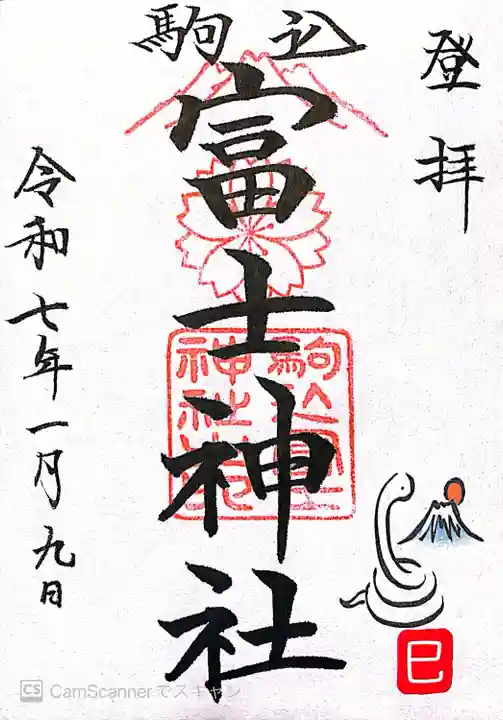 登拝
駒込
富士神社
令和七年一月九日
巳
CS CamScannerでスキャン